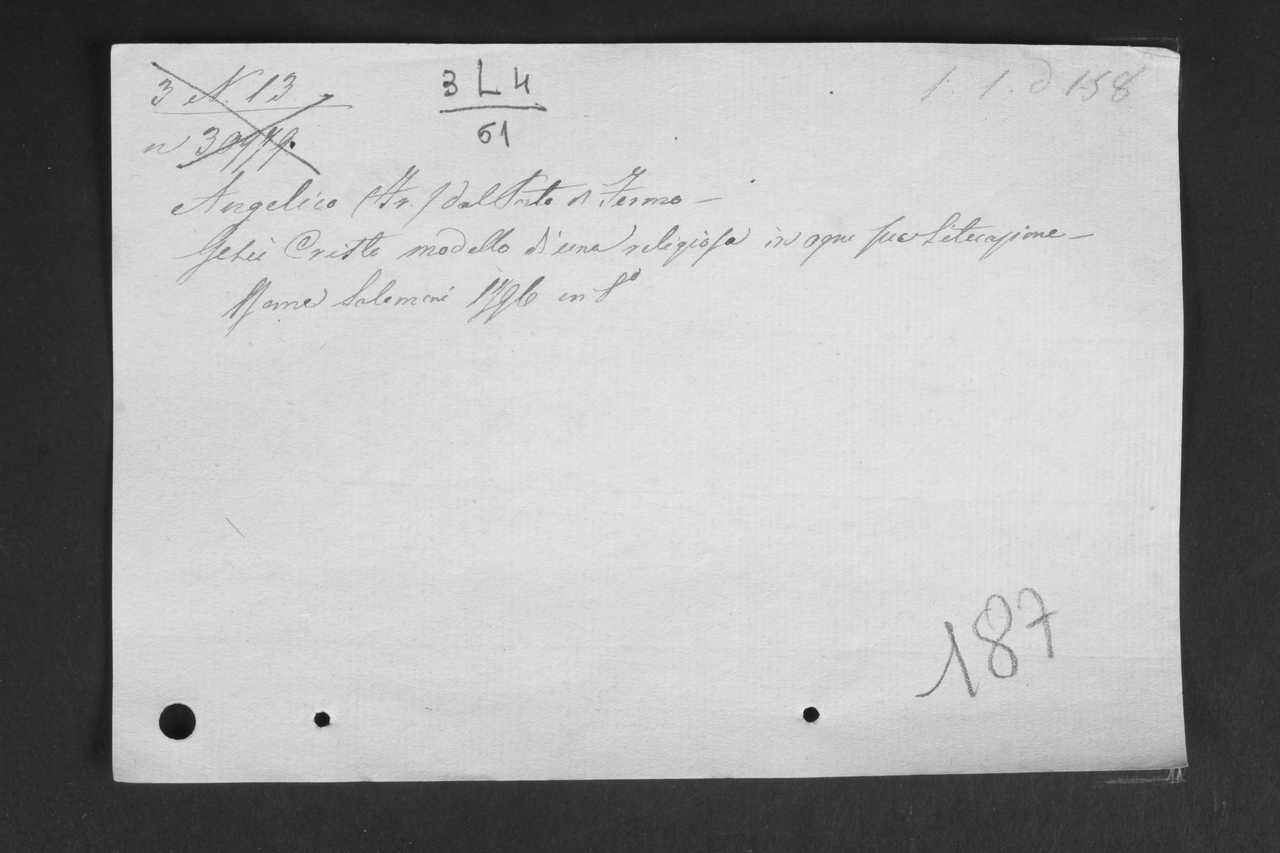 3 N. 13
3 L 4
61
1. 1. d 158
n 30979.
Angelico (Fr.) dal Porto di Fermo —
Gesù Cristo modello di una religiosa in ogni sua situazione —
Roma Salomoni 1796 in 8°
187